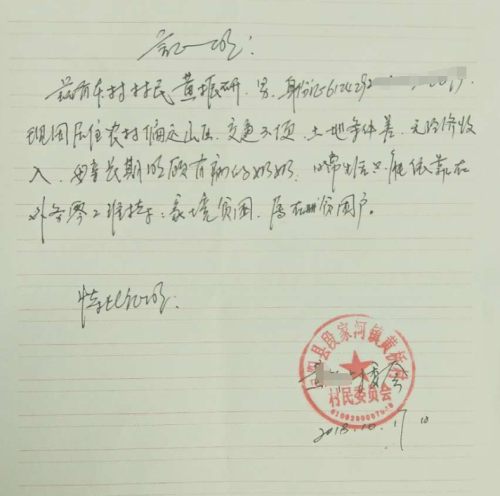 证明:
兹有本村村民黄振研,男,身份证612429
现因居住农村偏远山区,交通不便,土地条件差,无经济收
入,母亲长期照顾有病的奶奶,日常生活只能依靠在
外务零工维持,家境贫困,属在册贫困户。
特此证明.
县段家河镇黄桥村
村民委员会
2018.10.17日